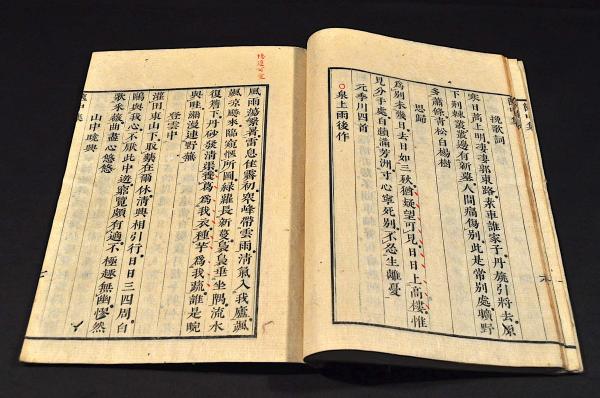 挽歌詞
寒日蒿上明淒淒郭東路素車誰家子丹旐引將去原
下荆棘叢叢邊有新墓人間痛傷別此是常別處曠野
多蕭條青松白楊樹
思歸
為別未幾日去日如三秋猶疑望可見日日上高樓惟
見分手處白蘋滿芳洲寸心寧死別不忍生離憂
元季川四首
泉上雨後作
風雨蕩繁暑雷息佳霽初衆峰帶雲雨清氣入我廬颯
颯涼飇來臨窺愜所圖綠蘿長新蔓裊裊垂坐隅流水
復簷下丹砂發清渠養為為我衣種芋為我蔬誰是畹
與畦瀰漫連野蕪
登雲中
灌田東山下取樂在爾休清興相引行日日三四周白
鷗與我心不厭此中遊窮覽頗有適不極趣無幽愡然
歌采薇曲盡心悠悠
山中曉興